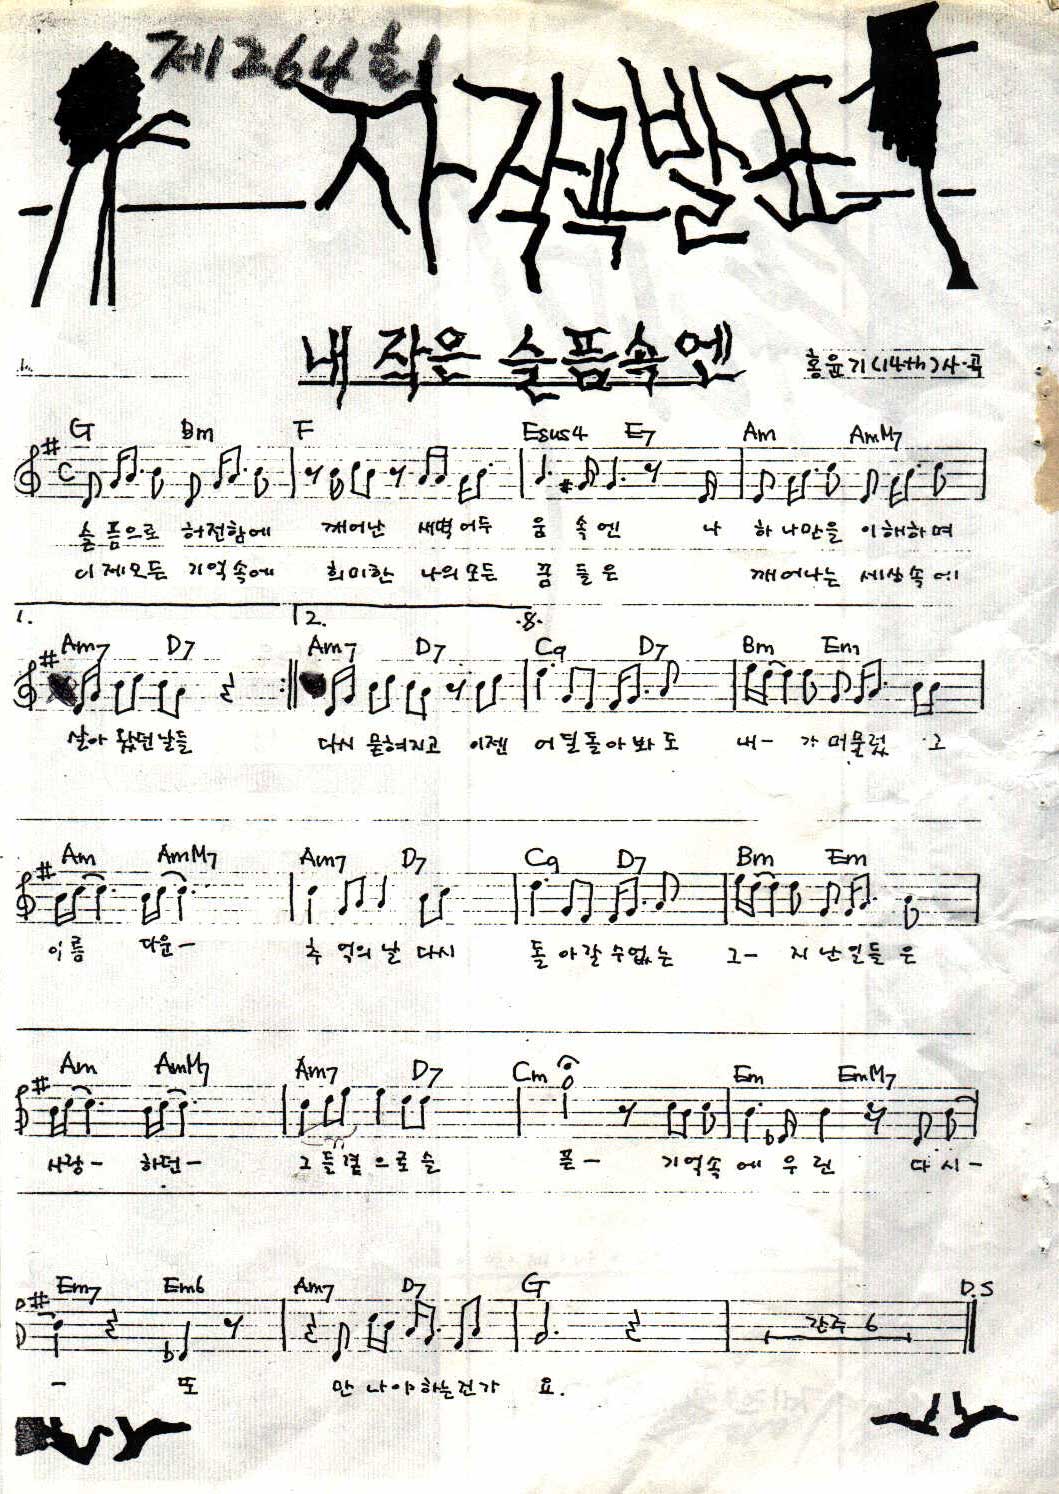 제264회
자작곡발표
내 작은 슬픔속엔
홍윤기(14th)사·곡
G Bm F Esus4 E7 Am AmM7
C
슬픔으로 허전함에 깨어난 새벽어두 움 속엔 나 하나만을 이해하며
이제모든 기억속에 희미한 나의모든 꿈 들은 깨어나는 세상속에
1. 2.
Am7 D7 Am7 D7 C9 D7 Bm Em
살아 왔던날들 다시 묻혀지고 이젠 어딜돌아봐도 내- 가 머물렀 그
Am AmM7 Am7 D7 C9 D7 Bm Em
이름 다운- 추 억의 날 다시 돌 아갈 수없는 그- 지난일들 은
Am AmM7 Am7 D7 Cm Em EmM7
사랑- 하던- 그들곁으로슬 픈- 기억속 에 우 린 다시-
Em7 Em6 Am7 D7 G D.S
간주 6
- 또 만나야하는건가 요.